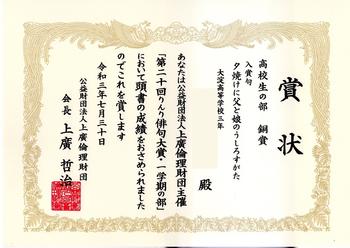 賞状
高校生の部 銅賞
入賞句
夕焼けに父と娘のうしろすがた
大淀高等学校三年
殿
あなたは公益財団法人上廣倫理財団主催
「第二十回りんり俳句大賞・一学期の部」
において頭書の成績をおさめられました
のでこれを賞します
令和三年七月三十日
公益財団法人上廣倫理財団
会長 上廣 哲治